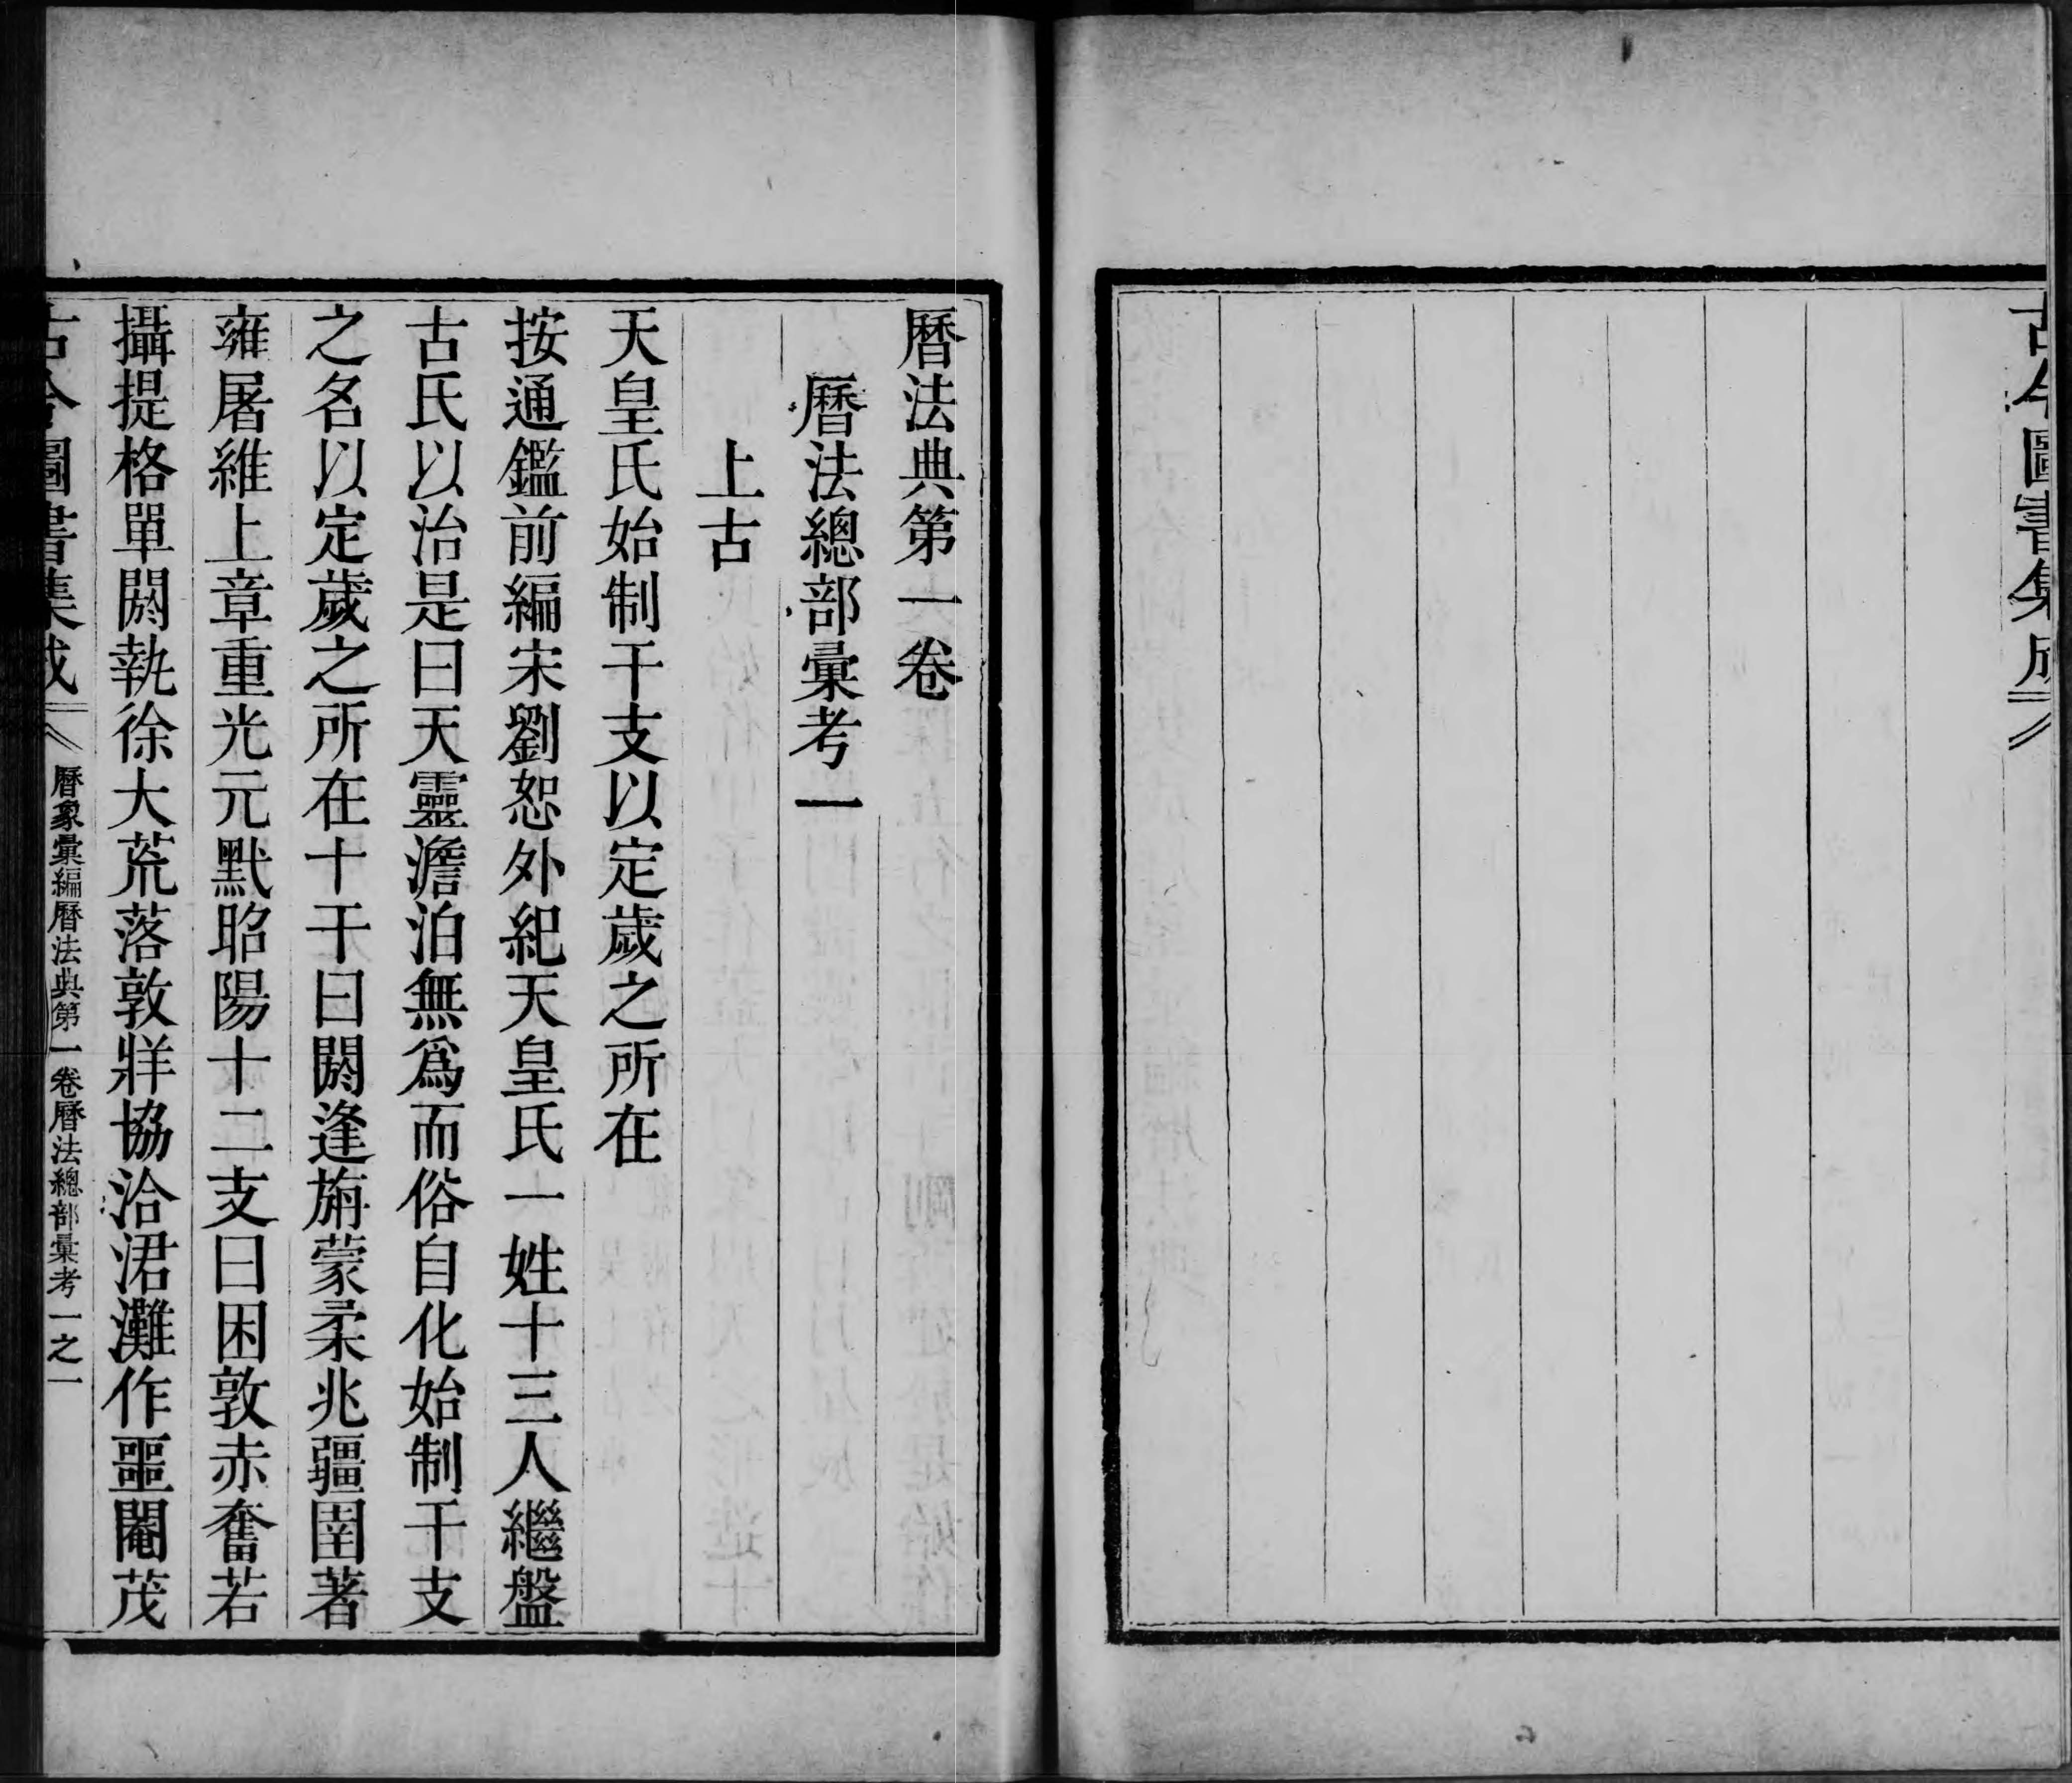 古今圖書集成
曆法典第一卷
曆法總部彙考一
上古
天皇氏始制干支以定歲之所在
按通鑑前編宋劉恕外紀天皇氏一姓十三人繼盤
古氏以治是曰天靈澹泊無爲而俗自化始制干支
之名以定歲之所在十干曰閼逢旃蒙柔兆疆圉著
雍屠維上章重光元黓昭陽十二支曰困敦赤奮若
攝提格單閼執徐大荒落敦牂協洽涒灘作噩閹茂
古今圖書集成 曆象彙編曆法典第一卷曆法總部彙考一之一